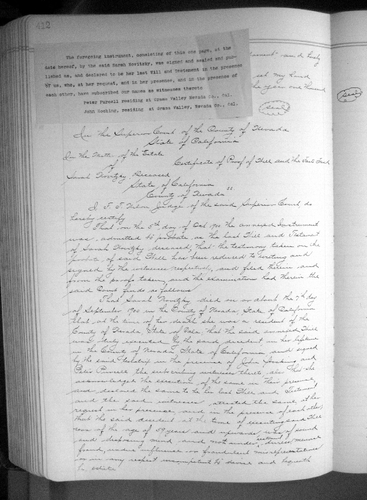 422
The foregoing instrument, consisting of this one page, at the
date hereof, by the said Sarah was signed and sealed and pub-
lished as, and declared to be her last Will and Testament in the presence
of us, who, at her request, and in her presence, and in the presence of
each other, have subscribed our names as witnesses thereto
Peter residing at Grass Valley Nevada Co., Cal.
John Hosking, residing at Grass Valley, Nevada Co., Cal.
Seal
seal
In the Superior Court of the County of Nevada
State of California
In the Matter of the Estate
of
Certificate of Proof of Will and the Facts Found
Sarah Deceased
State of California
County of Nevada
I, F. T. Nilon Judge of the said Superior Court do
hereby certify
That on the day of Oct 1901 the annexed Instrument
was admitted to probate as the last Will and Testament
of Sarah deceased, that the testimony taken on the
probate of said Will has been reduced to writing and
signed by the witnesses respectively and filed herein and
from the proofs taken and the examination had therein the
said Court finds as follows
That Sarah died on or about the 7th day
of September 1901 in the County of Nevada State of California
that at the time of her death she was a resident of the
County of Nevada State of that the said annexed Will
was duly executed by the said decedent in her lifetime
in the County of Nevada State of California and signed
by the said testatrix in the presence of John Hosking and
Peter the subscribing witnesses thereto also that she
acknowledged the execution of the same in their presence
and declared the same to be her last Will and Testament
and the said witnesses attested the same at her
request in her presence and in the presence of each other
that the said decedent at the time of executing said Will
was of the age of 59 years and upwards was of sound
and disposing mind and not under duress menace
fraud, undue influence nor fraudulent misrepresentations
or in any respect incompetent to devise and bequeath